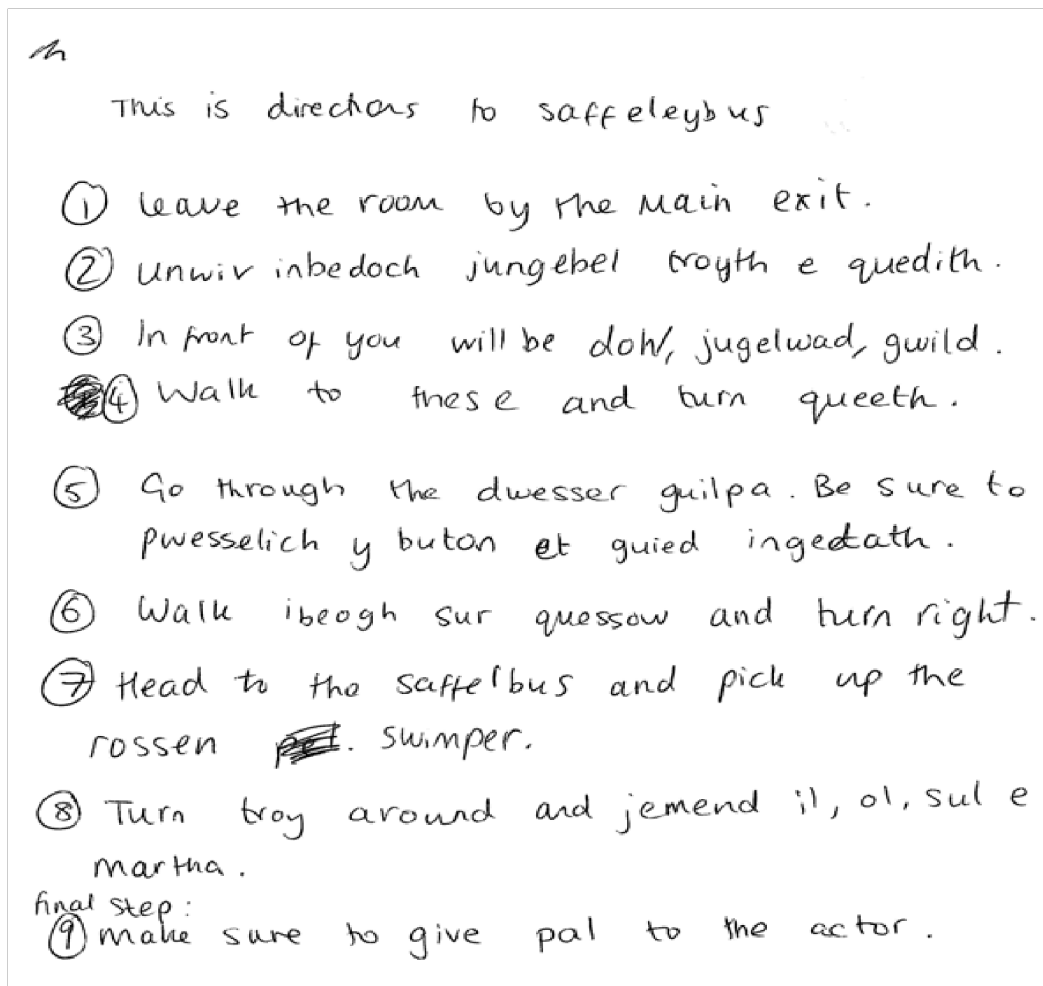 This is directions to saffeleybus
① Leave the room by the main exit.
② unwir inbedoch jungebel troyth e quedith.
③ In front of you will be doh/, jugelwad, gwild.
④ Walk to these and turn queeth.
⑤ Go through the dwesser guilpa. Be sure to
pwesselich y buton et guied ingedath.
⑥ Walk ibeogh sur quossow and turn right.
⑦ Head to the saffelbus and pick up the
rossen swimper.
⑧ Turn troy around and jemend il, ol, sul e
martha.
final step:
⑨ make sure to give pal to the actor.